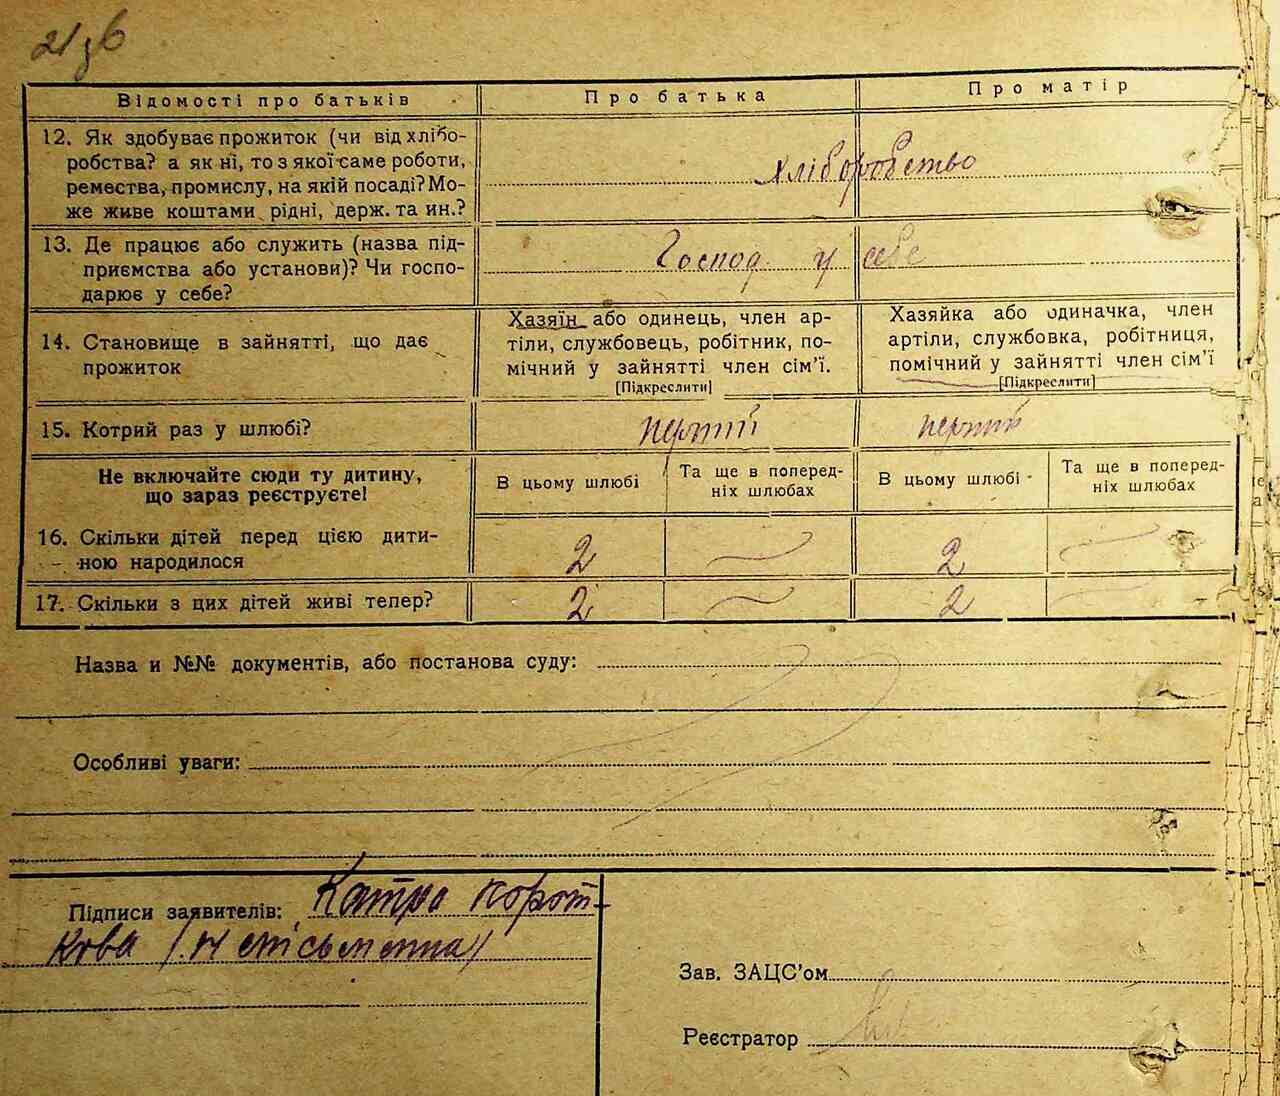 21зв
Відомості про батьків
Про батька
Про матір
12. Як здобуває прожиток (чи від хлібо-
робства? а як ні, то з якої саме роботи,
ремества, промислу, на якій посаді? Мо-
же живе коштами рідні, держ. та ин.?
хліборобство
13. Де працює або служить (назва під-
приємства або установи)? Чи госпо-
дарює у себе?
Господ у себе
14. Становище в зайнятті, що дає
прожиток
Хазяїн або одинець, член ар-
тіли, службовець, робітник, по-
мічний у зайнятті член сім'ї.
[Підкреслити]
Хазяйка або одиначка, член
артіли, службовка, робітниця,
помічний у зайнятті член сім'ї
[Підкреслити]
15. Котрий раз у шлюбі?
перший
перший
Не включайте сюди ту дитину,
що зараз реєструєте!
В цьому шлюбі
Та ще в поперед-
ніх шлюбах
В цьому шлюбі
Та ще в поперед-
ніх шлюбах
16. Скільки дітей перед цією дити-
ною народилося
2
2
17. Скільки з цих дітей живі тепер?
2
2
Назва и №№ документів, або постанова суду:
Особливі уваги:
Підписи заявителів: Катра Корот-
кова (неписьменна)
Зав. ЗАЦС'ом
Реєстратор